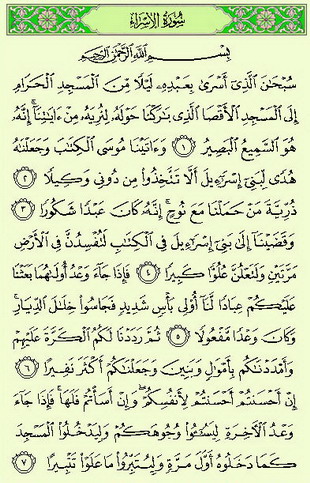 سُورَةُ الإِسْرَاءِ
بِسْمِ ٱللَّهِ ٱلرَّحْمَٰنِ ٱلرَّحِيمِ
سُبْحَٰنَ ٱلَّذِىٓ أَسْرَىٰ بِعَبْدِهِۦ لَيْلًا مِّنَ ٱلْمَسْجِدِ ٱلْحَرَامِ
إِلَى ٱلْمَسْجِدِ ٱلْأَقْصَا ٱلَّذِى بَٰرَكْنَا حَوْلَهُۥ لِنُرِيَهُۥ مِنْ ءَايَٰتِنَآ ۚ إِنَّهُۥ
هُوَ ٱلسَّمِيعُ ٱلْبَصِيرُ ١ وَءَاتَيْنَا مُوسَى ٱلْكِتَٰبَ وَجَعَلْنَٰهُ
هُدًى لِّبَنِىٓ إِسْرَٰٓءِيلَ أَلَّا تَتَّخِذُوا۟ مِن دُونِى وَكِيلًا ٢
ذُرِّيَّةَ مَنْ حَمَلْنَا مَعَ نُوحٍ ۚ إِنَّهُۥ كَانَ عَبْدًا شَكُورًا ٣
وَقَضَيْنَآ إِلَىٰ بَنِىٓ إِسْرَٰٓءِيلَ فِى ٱلْكِتَٰبِ لَتُفْسِدُنَّ فِى ٱلْأَرْضِ
مَرَّتَيْنِ وَلَتَعْلُنَّ عُلُوًّا كَبِيرًا ٤ فَإِذَا جَآءَ وَعْدُ أُولَىٰهُمَا بَعَثْنَا
عَلَيْكُمْ عِبَادًا لَّنَآ أُو۟لِى بَأْسٍ شَدِيدٍ فَجَاسُوا۟ خِلَٰلَ ٱلدِّيَارِ ۚ
وَكَانَ وَعْدًا مَّفْعُولًا ٥ ثُمَّ رَدَدْنَا لَكُمُ ٱلْكَرَّةَ عَلَيْهِمْ
وَأَمْدَدْنَٰكُم بِأَمْوَٰلٍ وَبَنِينَ وَجَعَلْنَٰكُمْ أَكْثَرَ نَفِيرًا ٦
إِنْ أَحْسَنتُمْ أَحْسَنتُمْ لِأَنفُسِكُمْ ۖ وَإِنْ أَسَأْتُمْ فَلَهَا ۚ فَإِذَا جَآءَ
وَعْدُ ٱلْءَاخِرَةِ لِيَسُۥٓـُٔوا۟ وُجُوهَكُمْ وَلِيَدْخُلُوا۟ ٱلْمَسْجِدَ
كَمَا دَخَلُوهُ أَوَّلَ مَرَّةٍ وَلِيُتَبِّرُوا۟ مَا عَلَوْا۟ تَتْبِيرًا ٧